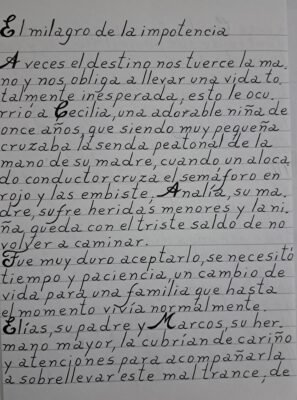 El milagro de la impotencia
A veces el destino nos tuerce la ma
no y nos obliga a llevar una vida to
talmente inesperada, esto le ocu
rrió a Cecilia, una adorable niña de
once años, que siendo muy pequeña
cruzaba la senda peatonal de la
mano de su madre, cuando un aloca
do conductor cruza el semáforo en
rojo y las embiste, Analía, su ma
dre, sufre heridas menores y la ni
ña, queda con el triste saldo de no
volver a caminar.
Fue muy duro aceptarlo, se necesitó
tiempo y paciencia, un cambio de
vida para una familia que hasta
el momento vivía normalmente.
Elías, su padre y Marcos, su her
mano mayor, la cubrían de cariño
y atenciones para acompañarla
a sobrellevar este mal trance, de